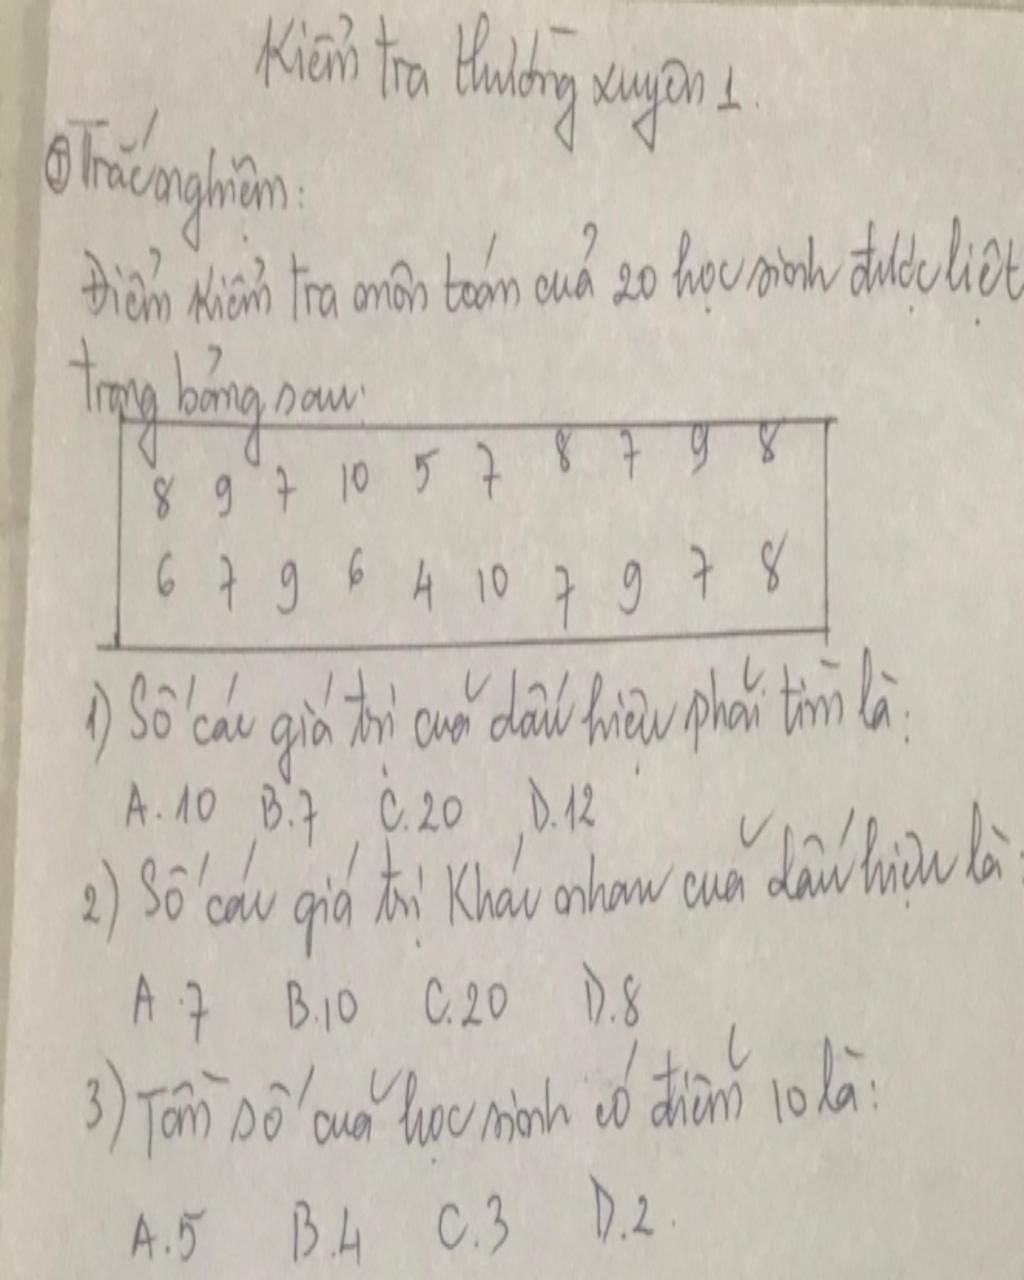 Kiểm tra thường xuyên 1.
I Trắc nghiệm:
Điểm kiểm tra môn toán của 20 học sinh được liệt
trong bảng sau:
8 9 7 10 5 7 8 7 9 8
6 7 9 6 4 10 7 9 7 8
1) Số các giá trị của dấu hiệu phải tìm là:
A. 10 B. 7 C. 20 D. 12
2) Số các giá trị khác nhau của dấu hiệu là:
A. 7 B. 10 C. 20 D. 8
3) Tần số của học sinh có điểm 10 là:
A. 5 B. 4 C. 3 D. 2.